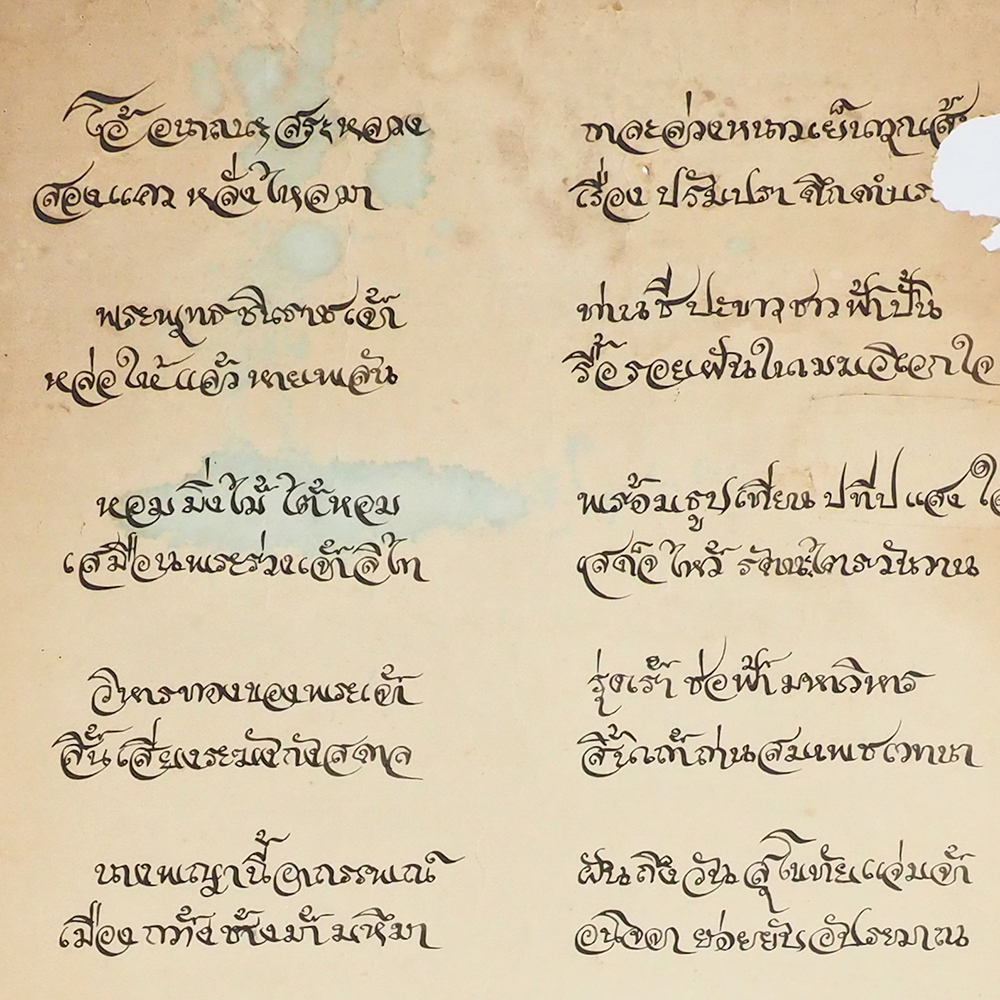 โอ้ อนาถนะ สระหลวง กาละล่วงหนาวเย็น
สองแคว หลั่งไหลมา เรื่อง ปรัมปรา ศึก
พระพุทธชินราชเจ้า ท่านชีปะขาวชาวฟ้าปั้น
หล่อให้แล้ว หายพลัน รื้อรอยฝัน
หอมมิ่งไม้ ไต้หอม พร้อมธูปเทียน ปทีป แสง
เสมือนพระร่วงเจ้าลิไท เสด็จไหว้ รัตนไตรวันวาน
วิหารทองของพระเจ้า รุ่งเร้า ช่อฟ้า มหาวิหาร
สิ้นเสียงระฆังกังสดาล สิ้นเถ้าถ่านสมเพชเวทนา
นางพญานี้อาถรรพณ์ ฝันถึงวัน สุโขทัยแจ่มจ้า
เมือง กว้าง ช้างม้า มหึมา อนิจจา ย่อยยับ อัประมาณ